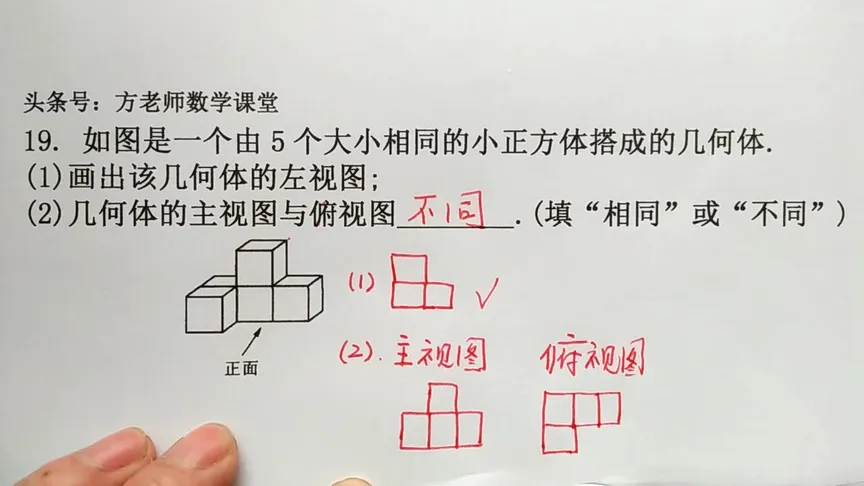 头条号：方老师数学课堂
19. 如图是一个由 5 个大小相同的小正方体搭成的几何体.
(1)画出该几何体的左视图;
(2)几何体的主视图与俯视图 不同 .(填“相同”或“不同”)
正面
(1) ✓
(2). 主视图 俯视图